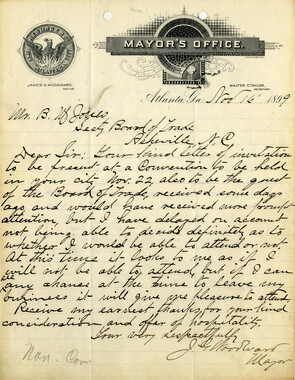 MAYOR'S OFFICE.
JAMES G. WOODWARD,
MAYOR
WALTER C. TAYLOR,
SECRETARY
Atlanta, Ga. Nov 16 1899
Mr. B. W
Secty Board of Trade
Asheville, N.C.
Dear Sir: Your kind letter of invitation
to be present at a Convention to be held
in your city Nov. 22 also to be the guest
of the Board of Trade, received some days
ago and would have received more prompt
attention, but I have delayed on account
not being able to decide definitely as to
whether I would be able to attend or not.
At this time it looks to me as if I
will not be able to attend, but if I can
any chance at the time to leave my
business it will give me pleasure to attend.
Receive my earnest thanks for your kind
consideration and offer of hospitality.
Your very respectfully,
J. G. Woodward
Mayor